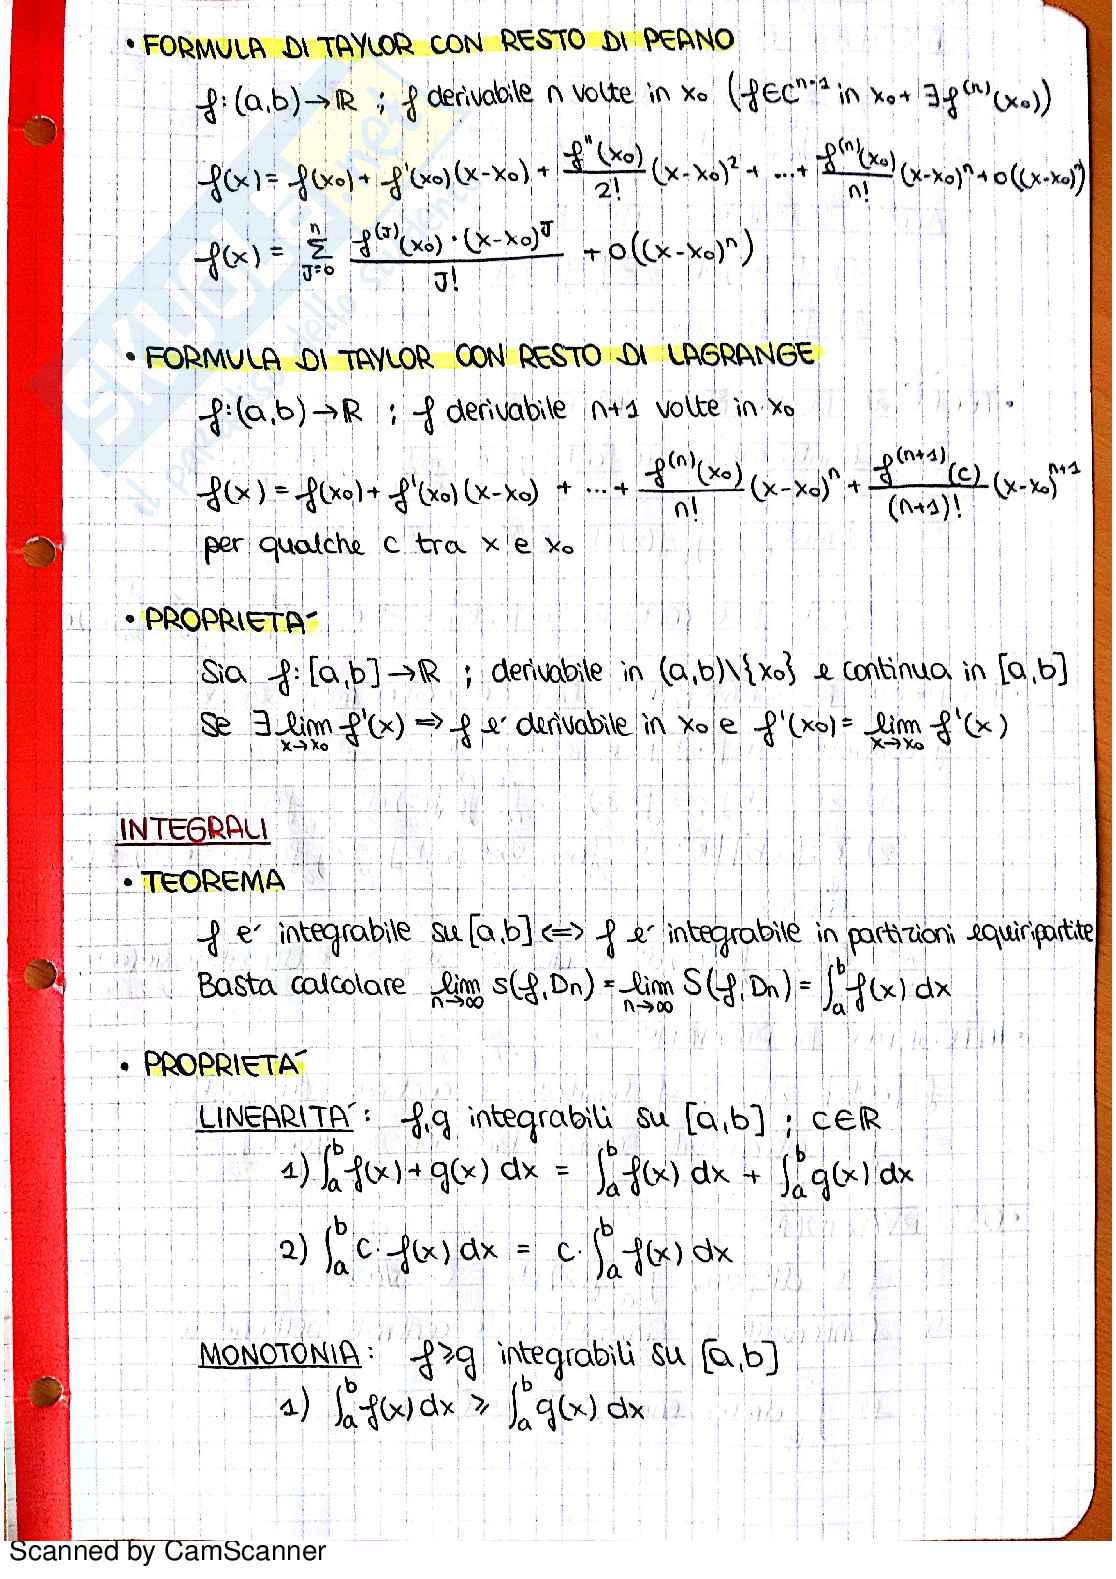 • FORMULA DI TAYLOR CON RESTO DI PEANO
f:(a,b)→ℝ ; f derivabile n volte in x₀ (f∈Cⁿ⁻¹ in x₀ + ∃f⁽ⁿ⁾(x₀))
f(x) = f(x₀) + f'(x₀)(x-x₀) + f''(x₀)/2! (x-x₀)² + ... + f⁽ⁿ⁾(x₀)/n! (x-x₀)ⁿ + o((x-x₀)ⁿ)
f(x) = Σ_{J=0}^{n} f⁽ᴶ⁾(x₀)·(x-x₀)ᴶ/J! + o((x-x₀)ⁿ)
• FORMULA DI TAYLOR CON RESTO DI LAGRANGE
f:(a,b)→ℝ ; f derivabile n+1 volte in x₀
f(x) = f(x₀) + f'(x₀)(x-x₀) + ... + f⁽ⁿ⁾(x₀)/n! (x-x₀)ⁿ + f⁽ⁿ⁺¹⁾(c)/(n+1)! (x-x₀)ⁿ⁺¹
per qualche c tra x e x₀
• PROPRIETA´
Sia f:[a,b]→ℝ ; derivabile in (a,b)\{x₀} e continua in [a,b]
Se ∃ lim_{x→x₀} f'(x) ⇒ f e´ derivabile in x₀ e f'(x₀) = lim_{x→x₀} f'(x)
INTEGRALI
• TEOREMA
f e´ integrabile su [a,b] ⟺ f e´ integrabile in partizioni equiripartite
Basta calcolare lim_{n→∞} s(f,Dn) = lim_{n→∞} S(f,Dn) = ∫_a^b f(x) dx
• PROPRIETA´
LINEARITA´: f,g integrabili su [a,b] ; c∈ℝ
1) ∫_a^b f(x)+g(x) dx = ∫_a^b f(x) dx + ∫_a^b g(x) dx
2) ∫_a^b c·f(x) dx = c·∫_a^b f(x) dx
MONOTONIA: f⩾g integrabili su [a,b]
1) ∫_a^b f(x) dx ⩾ ∫_a^b g(x) dx
Scanned by CamScanner